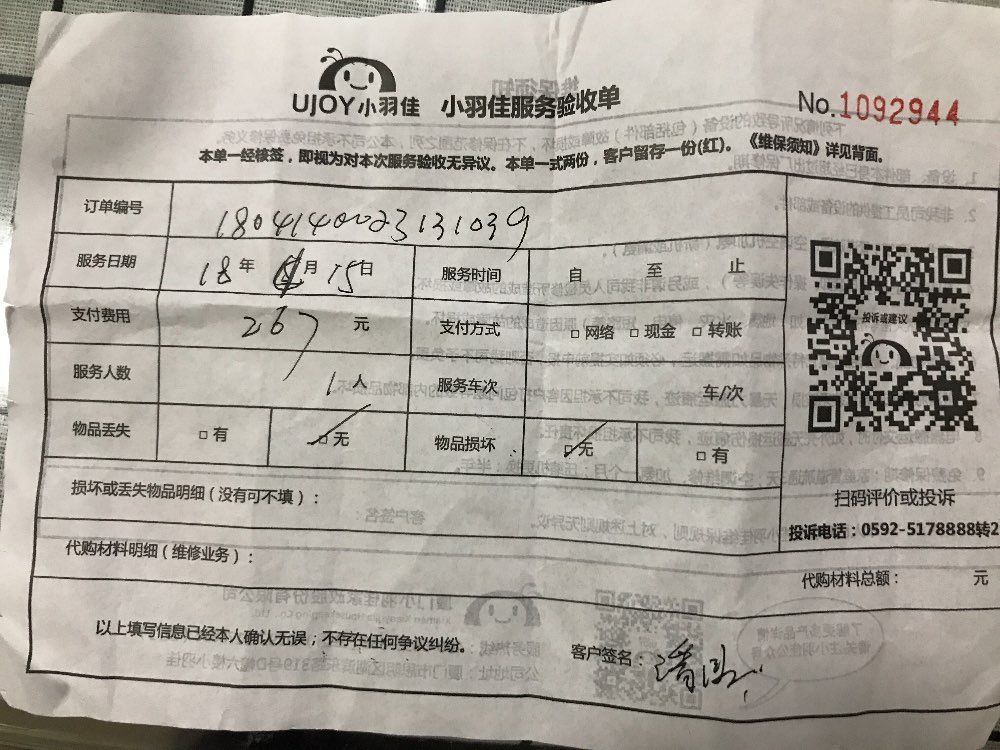 UJOY小羽佳 小羽佳服务验收单 No.1092944
本单一经核签，即视为对本次服务验收无异议。本单一式两份，客户留存一份(红)。《维保须知》详见背面。
订单编号 1804140023131039
服务日期 18年 月15日 服务时间 自 至 止
支付费用 267 元 支付方式 □网络 □现金 □转账
服务人数 1人 服务车次 车/次
物品丢失 □有 □无 物品损坏 □无 □有
投诉或建议
扫码评价或投诉
投诉电话：0592-5178888转2
损坏或丢失物品明细（没有可不填）：
代购材料明细（维修业务）：
代购材料总额： 元
以上填写信息已经本人确认无误；不存在任何争议纠纷。
客户签名：